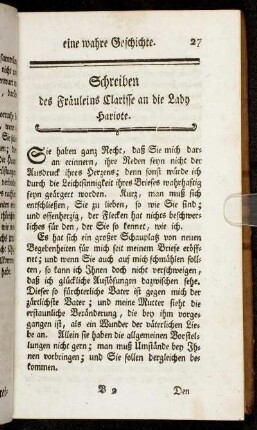 eine wahre Geschichte. 27
Schreiben
des Fräuleins Clarisse an die Lady
Hariote.
Sie haben ganz Recht, daß Sie mich dar-
an erinnern, ihre Reden seyn nicht der
Ausdruck ihres Herzens; denn sonst würde ich
durch die Leichtsinnigkeit ihres Briefes wahrhaftig
seyn geärgert worden. Kurz, man muß sich
entschließen, Sie zu lieben, so wie Sie sind;
und offenherzig, der Flecken hat nichts beschwer-
liches für den, der Sie so kennet, wie ich.
Es hat sich ein großer Schauplatz von neuen
Begebenheiten für mich seit meinem Briefe eröff-
net; und wenn Sie auch auf mich schmählen soll-
ten, so kann ich Ihnen doch nicht verschweigen,
daß ich glückliche Auslösungen dazwischen sehe.
Dieser so fürchterliche Vater ist gegen mich der
zärtlichste Vater; und meine Mutter sieht die
erstaunliche Veränderung, die bey ihm vorge-
gangen ist, als ein Wunder der väterlichen Lie-
be an. Allein sie haben die allgemeinen Vorstel-
lungen nicht gern; man muß Umstände bey Ih-
nen vorbringen; und Sie sollen dergleichen be-
kommen.
B 2 Den